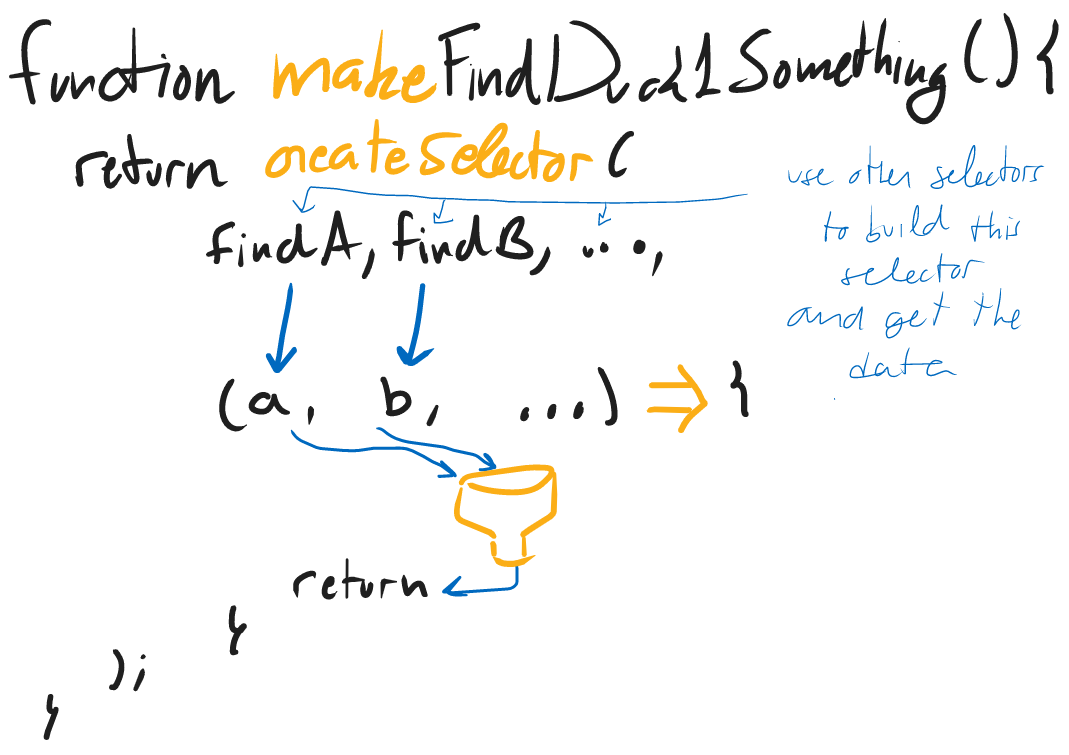 function makeFindDuck1Something() {
return createSelector (
findA, findB, ...,
(a, b, ...) => {
return
}
);
}
use other selectors
to build this
selector
and get the
data